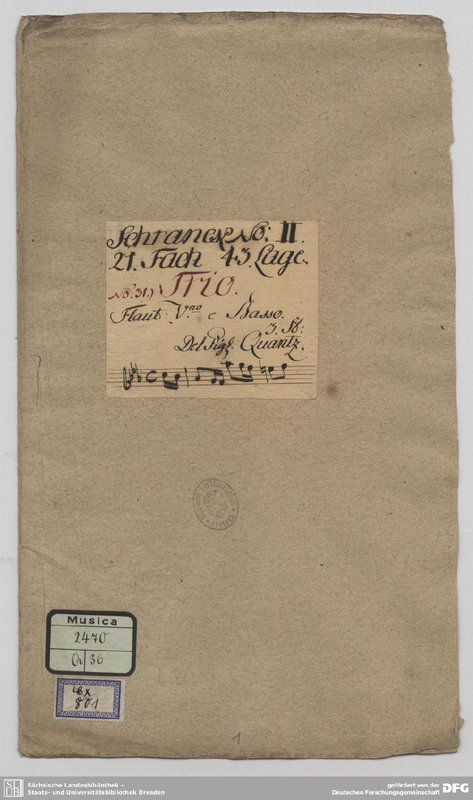 Schranck No: II.
21. Fach 43. Lage.
No. 31.) Trio.
Flaut. V.no e Basso.
3. St:
Del Sigr. Quantz.
Musica
2470
Q/36
801
1
Sächsische Landesbibliothek –
Staats- und Universitätsbibliothek Dresden
gefördert von der
Deutschen Forschungsgemeinschaft
DFG